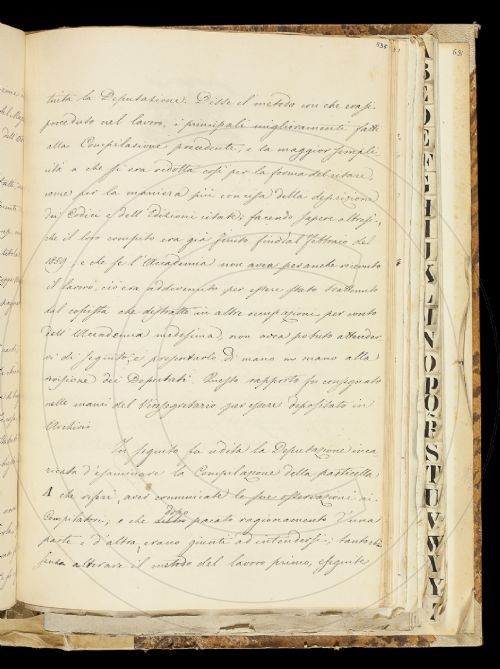 635
631
tuita la Deputazione. Disse il metodo con che erasi
proceduto nel lavoro, i principali miglioramenti fatti
alla Compilazione precedente, e la maggior simpli
cità a che si era ridotta così per la forma del citare,
come per la maniera più concisa della descrizione
dei Codici e dell'Edizioni citate; facendo sapere altresì,
che il loro compito era già finito fin dal Febbraio del
1859, e che se l'Accademia non avea per anche ricevuto
il lavoro, ciò era addivenuto per essere stato trattenuto
dal copista che distratto in altre occupazioni per conto
dell'Accademia medesima, non avea potuto attender
vi di seguito, e presentarlo di mano in mano alla
revisione dei Deputati. Questo rapporto fu consegnato
nelle mani del Vicesegretario per essere depositato in
Archivio
In seguito fu udita la Deputazione inca
ricata d'esaminare la Compilazione della particella
A che riferì, aver comunicate le sue osservazioni ai
Compilatori, e che dopo pacato ragionamento d'una
parte e d'altra, erano giunti ad intendersi; tantochè
senza alterare il metodo del lavoro primo, eseguite
A
B
C
D
E
F
G
H
I
J
K
L
M
N
O
P
Q
R
S
T
U
V
W
X
Y
Z